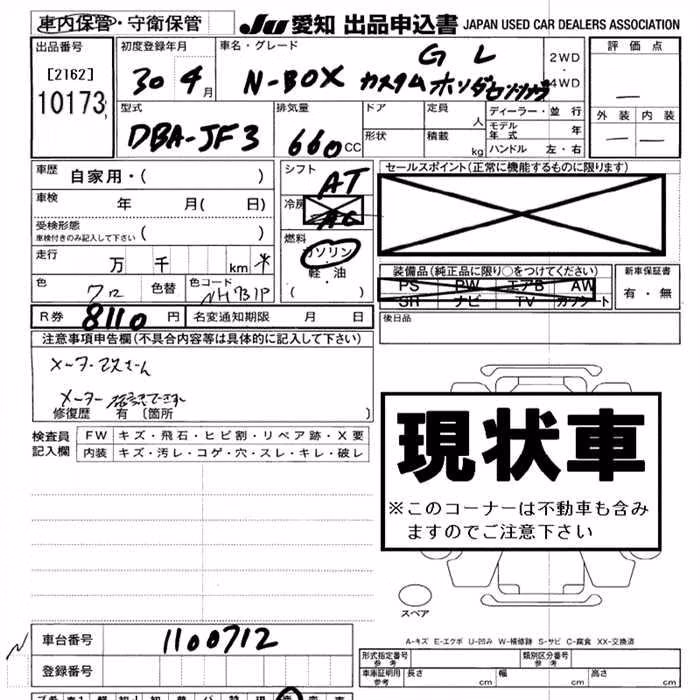 車内保管・守衛保管 JU 愛知 出品申込書 JAPAN USED CAR DEALERS ASSOCIATION
出品番号 [2162] 10173
初度登録年月 30 4月
車名・グレード N-BOX カスタム G L ホンダセンシング
2WD・4WD
評価点 —
外装 — 内装 —
型式 DBA-JF3
排気量 660CC
ドア 形状
定員 人 積載 kg
ディーラー・並行
モデル年式 年
ハンドル 左・右
車歴 自家用・( )
車検 年 月( 日)
受検形態 車検付きのみ記入して下さい ( )
走行 万 千 km *
色 クロ 色替 色コード NH731P
シフト AT
冷房 AC
燃料 ガソリン・軽油 ( )
セールスポイント(正常に機能するものに限ります)
装備品(純正品に限り○をつけてください)
PS PW エアB AW
SR ナビ TV カワシート
新車保証書 有・無
R券 8110円 名変通知期限 月 日
後日品
注意事項申告欄(不具合内容等は具体的に記入して下さい)
メーター
メーター
修復歴 有〔箇所 〕
検査員記入欄 FW キズ・飛石・ヒビ割・リペア跡・X要
内装 キズ・汚レ・コゲ・穴・スレ・キレ・破レ
現状車
※このコーナーは不動車も含み
ますのでご注意下さい
スペア
A-キズ E-エクボ U-凹み W-補修跡 S-サビ C-腐食 XX-交換済
車台番号 1100712
登録番号
形式指定番号 参考 類別区分番号 参考
車庫証明用 参考 長さ cm 幅 cm 高さ cm